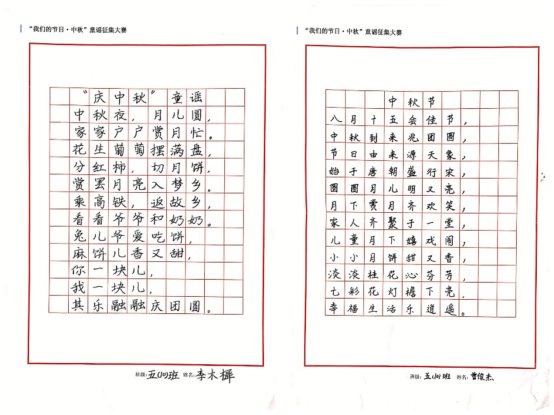 “我们的节日·中秋”童谣征集大赛
“庆中秋”童谣
中秋夜,月儿圆,
家家户户赏月忙。
花生葡萄摆满盘,
分红柿,切月饼.
赏罢月亮入梦乡。
乘高铁,返故乡,
看看爷爷和奶奶。
兔儿爷爱吃饼,
麻饼儿香又甜,
你一块儿,
我一块儿,
其乐融融庆团圆。
班级:五(四)班 姓名:李木樨
“我们的节日·中秋”童谣征集大赛
中秋节
八月十五会佳节,
中秋到来兆团圆,
节日由来源天象,
始于唐朝盛行宋,
圆圆月儿明又亮,
月下赏月齐欢笑,
家人齐聚于一堂,
儿童月下嬉戏闹,
小小月饼甜又香,
淡淡桂花沁芬芳,
七彩花灯福下亮,
幸福生活乐逍遥。
班级:五(四)班 姓名:曹俊杰